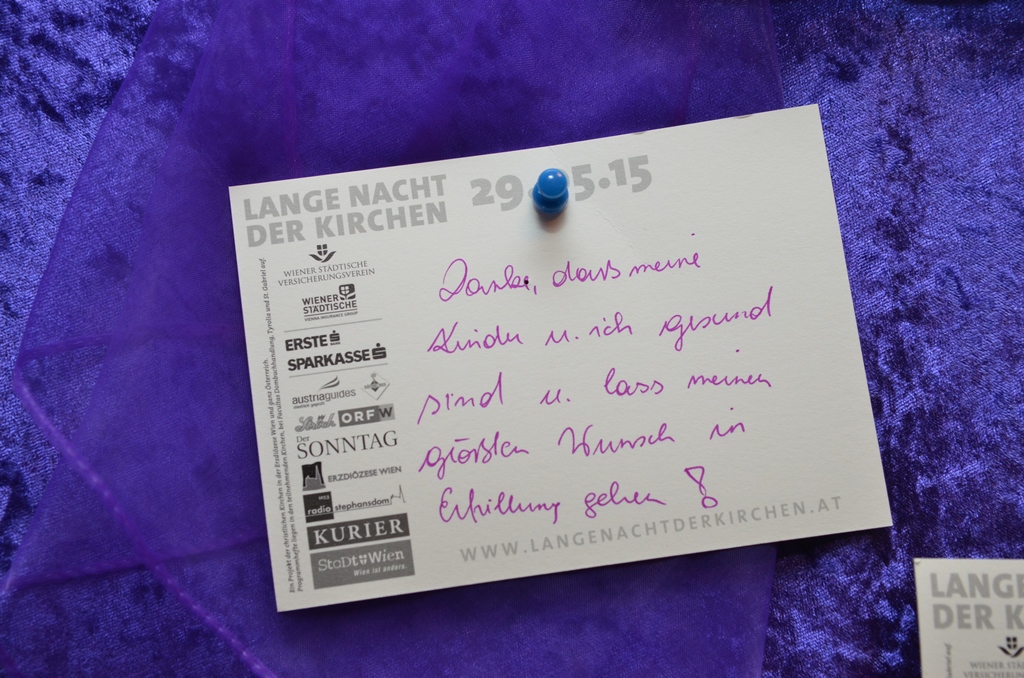 LANGE NACHT
DER KIRCHEN
29.05.15
WIENER STÄDTISCHE
VERSICHERUNGSVEREIN
WIENER
STÄDTISCHE
VIENNA INSURANCE GROUP
ERSTE
SPARKASSE
austriaguides
ORF W
Der
SONNTAG
ERZDIÖZESE WIEN
radio stephansdom
KURIER
StaDt Wien
Wien ist anders.
Ein Projekt der christlichen Kirchen in der Erzdiözese Wien und ganz Österreich.
Programmhefte liegen in den teilnehmenden Kirchen, bei Facultas Dombuchhandlung, Tyrolia und St. Gabriel auf.
Danke, dass meine
Kinder u. ich gesund
sind u. lass meinen
größten Wunsch in
Erfüllung gehen !
WWW.LANGENACHTDERKIRCHEN.AT
LANGE
DER K
WIENER S